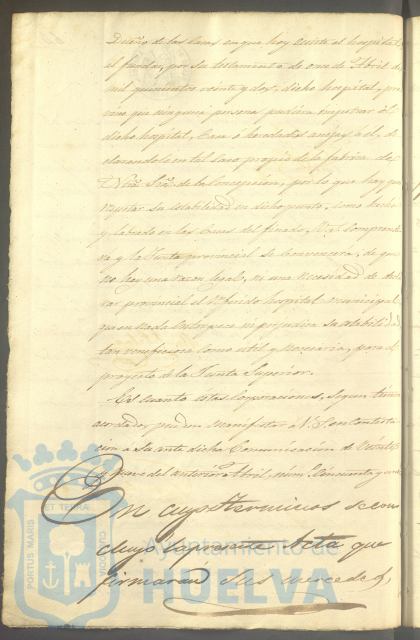 Dueño de las casas en que hoy existe el hospital,
el fundar, por su testamento de once de Abril de
mil quinientos veinte y dos, dicho hospital, pre
vino que ninguna persona pudiera impetrar el
dicho hospital, Casa ó heredades anejas á el, de
clarandolo en tal caso propio de la fabrica de
Ntra. Sra. de la Concepcion, por lo que hay que
respetar su estabilidad en dicho punto, como hecho
y labrado en las Casas del finado. V. S. comprende
ra y la Junta provincial se convencera, de que
no hay una razon legal, ni una necesidad de decla
rar provincial el referido hospital municipal
que en nada entorpece ni perjudica su estabilidad
tan beneficiosa como util y necesaria, para el
proyecto de la Junta Superior.
Es cuanto estas Corporaciones, segun tienen
acordado, pueden manifestar á V. S. en contesta
cion á su ante dicha Comunicacion de veinte
del anterior Abril, núm.
En cuyos terminos se con
cluyó la presente Acta que
firmaran sus mercedes,
PORTUS MARIS ET TERRÆ CUSTODIA
Ayuntamiento de
HUELVA